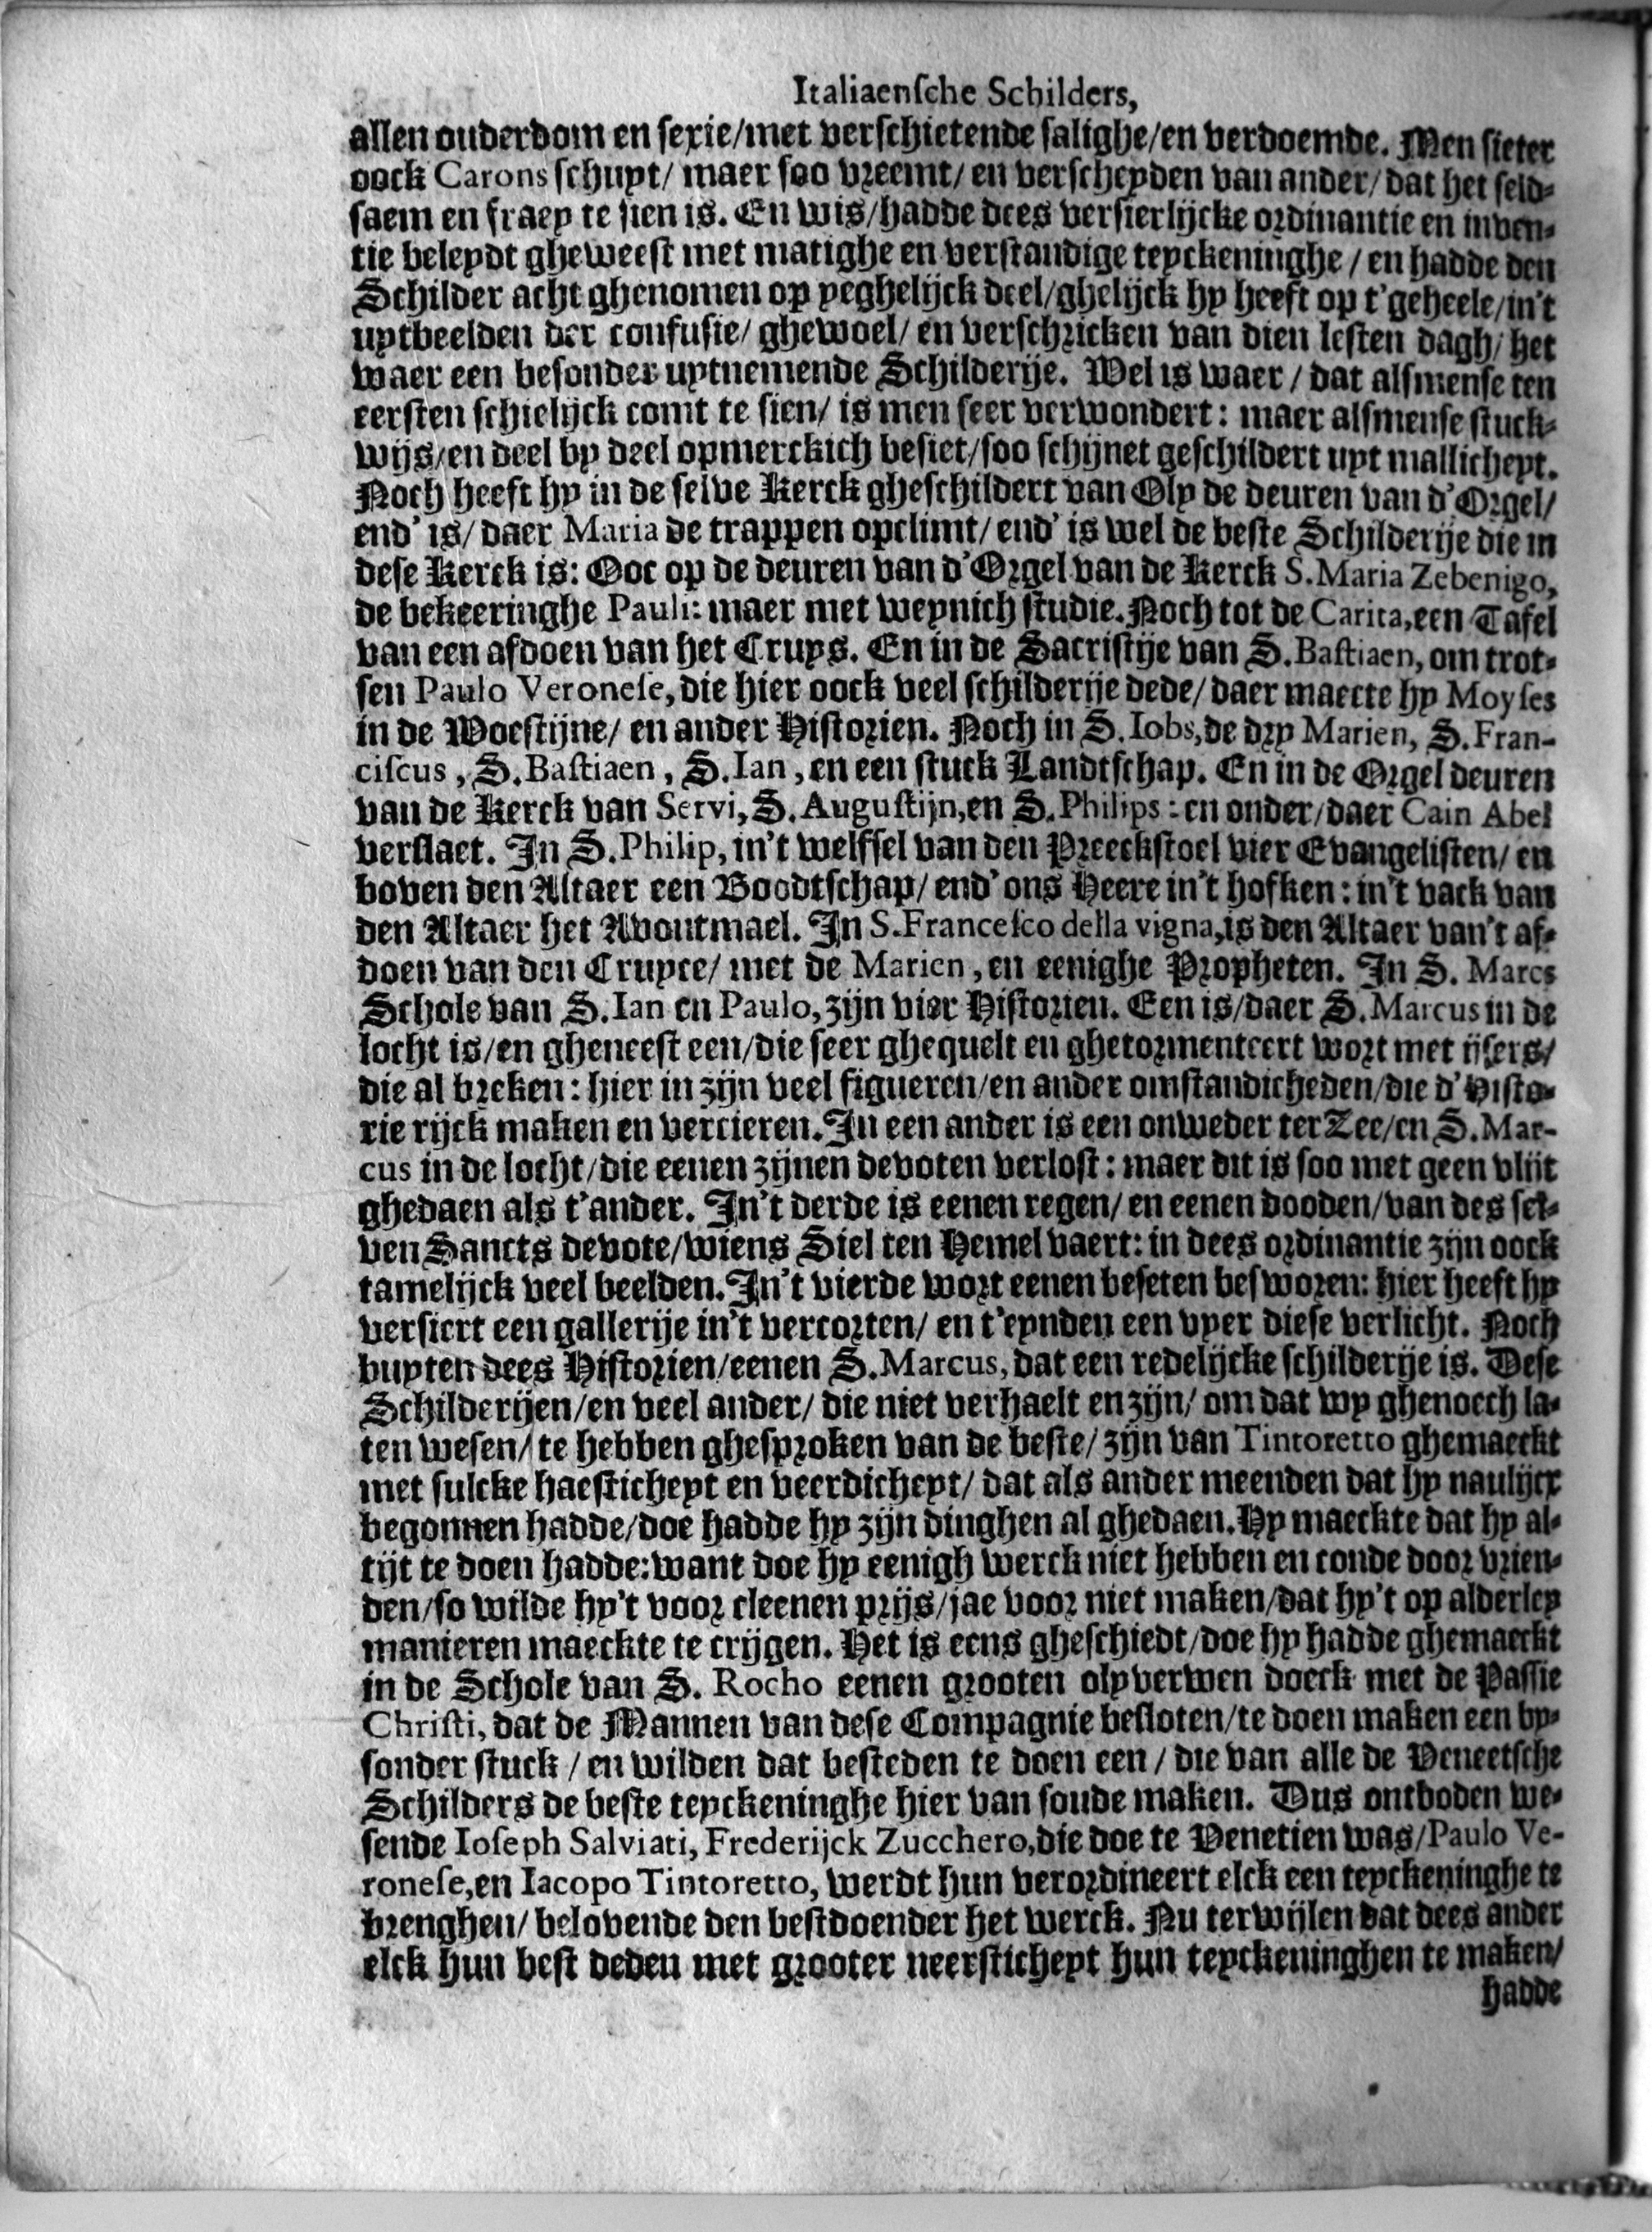 Italiaensche Schilders,
allen ouderdom en sexie/met verschietende salighe/en verdoemde. Men sieter
oock Carons schuyt/ maer soo vreemt/ en verscheyden van ander/ dat het seld-
saem en fraey te sien is. En wis/hadde dees versierlijcke ordinantie en inven-
tie beleydt gheweest met matighe en verstandige teyckeninghe / en hadde den
Schilder acht ghenomen op yeghelijck deel/ghelijck hy heeft op t'geheele/in't
uytbeelden der confusie/ ghewoel/ en verschricken van dien lesten dagh/ het
waer een besonder uytnemende Schilderije. Wel is waer / dat alsmense ten
eersten schielijck comt te sien/ is men seer verwondert: maer alsmense stuck-
wijs/en deel by deel opmerckich besiet/soo schijnet geschildert uyt mallicheyt.
Noch heeft hy in de selve Kerck gheschildert van Oly de deuren van d'Orgel/
end' is/ daer Maria de trappen opclimt/ end' is wel de beste Schilderije die in
dese Kerck is: Ooc op de deuren van d'Orgel van de Kerck S. Maria Zebenigo,
de bekeeringhe Pauli: maer met weynich studie. Noch tot de Carita, een Tafel
van een afdoen van het Cruys. En in de Sacristije van S. Bastiaen, om trot-
sen Paulo Veronese, die hier oock veel schilderije dede/ daer maecte hy Moyses
in de Woestijne/ en ander Historien. Noch in S. Iobs, de dry Marien, S. Fran-
ciscus, S. Bastiaen, S. Ian, en een stuck Landtschap. En in de Orgel deuren
van de Kerck van Servi, S. Augustijn, en S. Philips: en onder/daer Cain Abel
verslaet. In S. Philip, in't welfsel van den Preeckstoel vier Evangelisten/ en
boven den Altaer een Boodtschap/ end' ons Heere in't hofken: in't vack van
den Altaer het Avontmael. In S. Francesco della vigna, is den Altaer van't af-
doen van den Cruyce/ met de Marien, en eenighe Propheten. In S. Marcs
Schole van S. Ian en Paulo, zijn vier Historien. Een is/daer S. Marcus in de
locht is/en gheneest een/die seer ghequelt en ghetormenteert wort met ijsers/
die al breken: hier in zijn veel figueren/en ander omstandicheden/die d'Histo-
rie rijck maken en vercieren. In een ander is een onweder ter Zee/en S. Mar-
cus in de locht/die eenen zijnen devoten verlost: maer dit is soo met geen vlijt
ghedaen als t'ander. In't derde is eenen regen/ en eenen dooden/van des sel-
ven Sancts devote/wiens Siel ten Hemel vaert: in dees ordinantie zijn oock
tamelijck veel beelden. In't vierde wort eenen beseten besworen: hier heeft hy
versiert een gallerije in't vercorten/ en t'eynden een vyer diese verlicht. Noch
buyten dees Historien/eenen S. Marcus, dat een redelijcke schilderije is. Dese
Schilderijen/en veel ander/ die niet verhaelt en zijn/ om dat wy ghenoech la-
ten wesen/ te hebben ghesproken van de beste/ zijn van Tintoretto ghemaeckt
met sulcke haesticheyt en veerdicheyt/ dat als ander meenden dat hy naulijcx
begonnen hadde/doe hadde hy zijn dinghen al ghedaen. Hy maeckte dat hy al-
tijt te doen hadde: want doe hy eenigh werck niet hebben en conde door vrien-
den/so wilde hy't voor cleenen prijs/jae voor niet maken/dat hy't op alderley
manieren maeckte te crijgen. Het is eens gheschiedt/doe hy hadde ghemaeckt
in de Schole van S. Rocho eenen grooten olyverwen doeck met de Passie
Christi, dat de Mannen van dese Compagnie besloten/te doen maken een by-
sonder stuck / en wilden dat besteden te doen een / die van alle de Veneetsche
Schilders de beste teyckeninghe hier van soude maken. Dus ontboden we-
sende Ioseph Salviati, Frederijck Zucchero, die doe te Venetien was/Paulo Ve-
ronese, en Iacopo Tintoretto, werdt hun verordineert elck een teyckeninghe te
brenghen/ belovende den bestdoender het werck. Nu terwijlen dat dees ander
elck hun best deden met grooter neersticheyt hun teyckeninghen te maken/
hadde